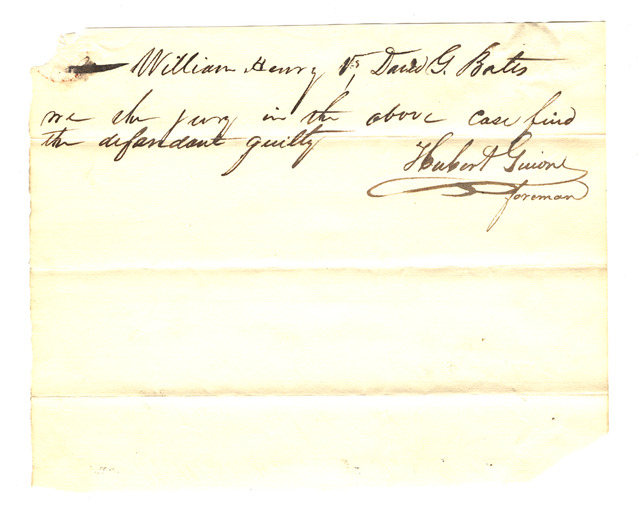 William Henry vs David G. Bates
we the jury in the above case find
the defandant guilty
Hubert Guion
foreman